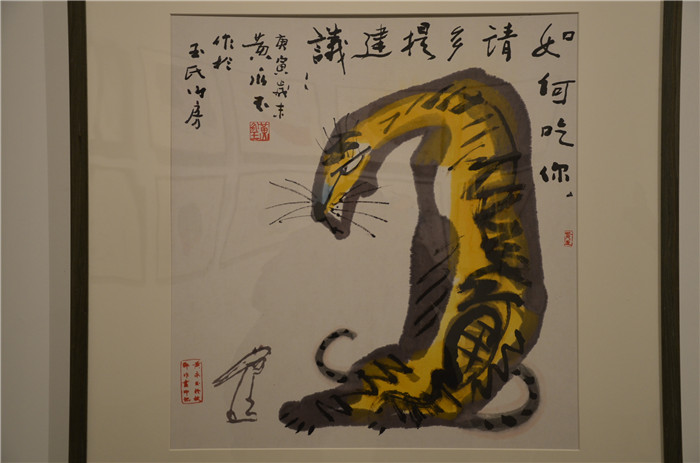 如何吃你,
請多提建議!
庚寅歲末
黄永玉
作於
玉氏山房